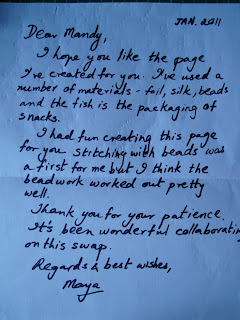 JAN. 2011
Dear Mandy,
I hope you like the page
I've created for you. I've used a
number of materials - foil, silk, beads
and the fish is the packaging of
snacks.
I had fun creating this page
for you. Stitching with beads was
a first for me but I think the
beadwork worked out pretty
well.
Thank you for your patience.
It's been wonderful collaborating
on this swap.
Regards & best wishes,
Maya